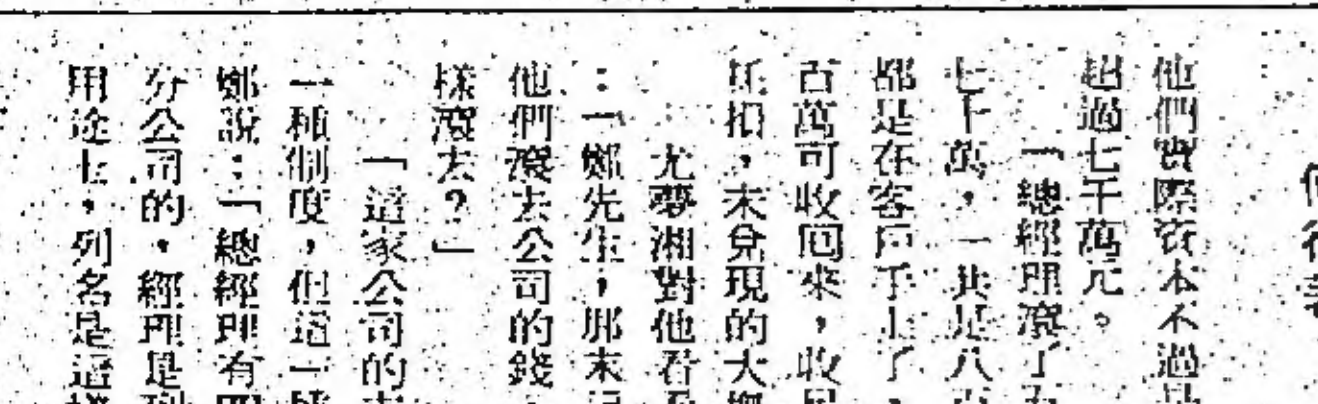 他們實際資本不過
超過七千萬元。
「總經理滾了五
七十萬,一共是八百
都是在客戶手上了,
百萬可收囘來,收
折扣,未兌現的大概
尤夢湘對他看
:「鄭先生,那末
他們滾去公司的錢,
樣滾去?」
「這家公司的
一種制度,但這一
鄭說:「總經理有四
分公司的,經理是
用途上,列名是這樣